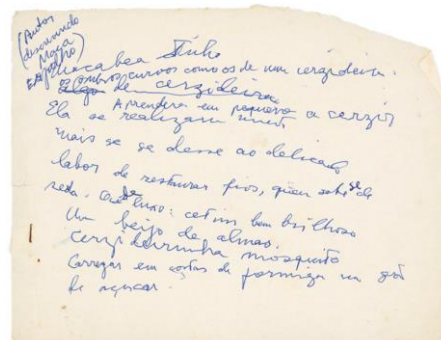 (Autor
descrevendo
Macabea
Macabea tinha
ombros curvos como os de uma cerzideira.
algo de cerzideira
Aprendera em pequena a cerzir
Ela se realizaria muito
mais se se desse ao delicado
labor de restaurar fios, quem sabe se de
seda. Ou de luxo: cetim bem brilhoso
Um beijo de almas.
Cerzideirinha mosquito
Carregar em costas de formiga um grão
de açucar.